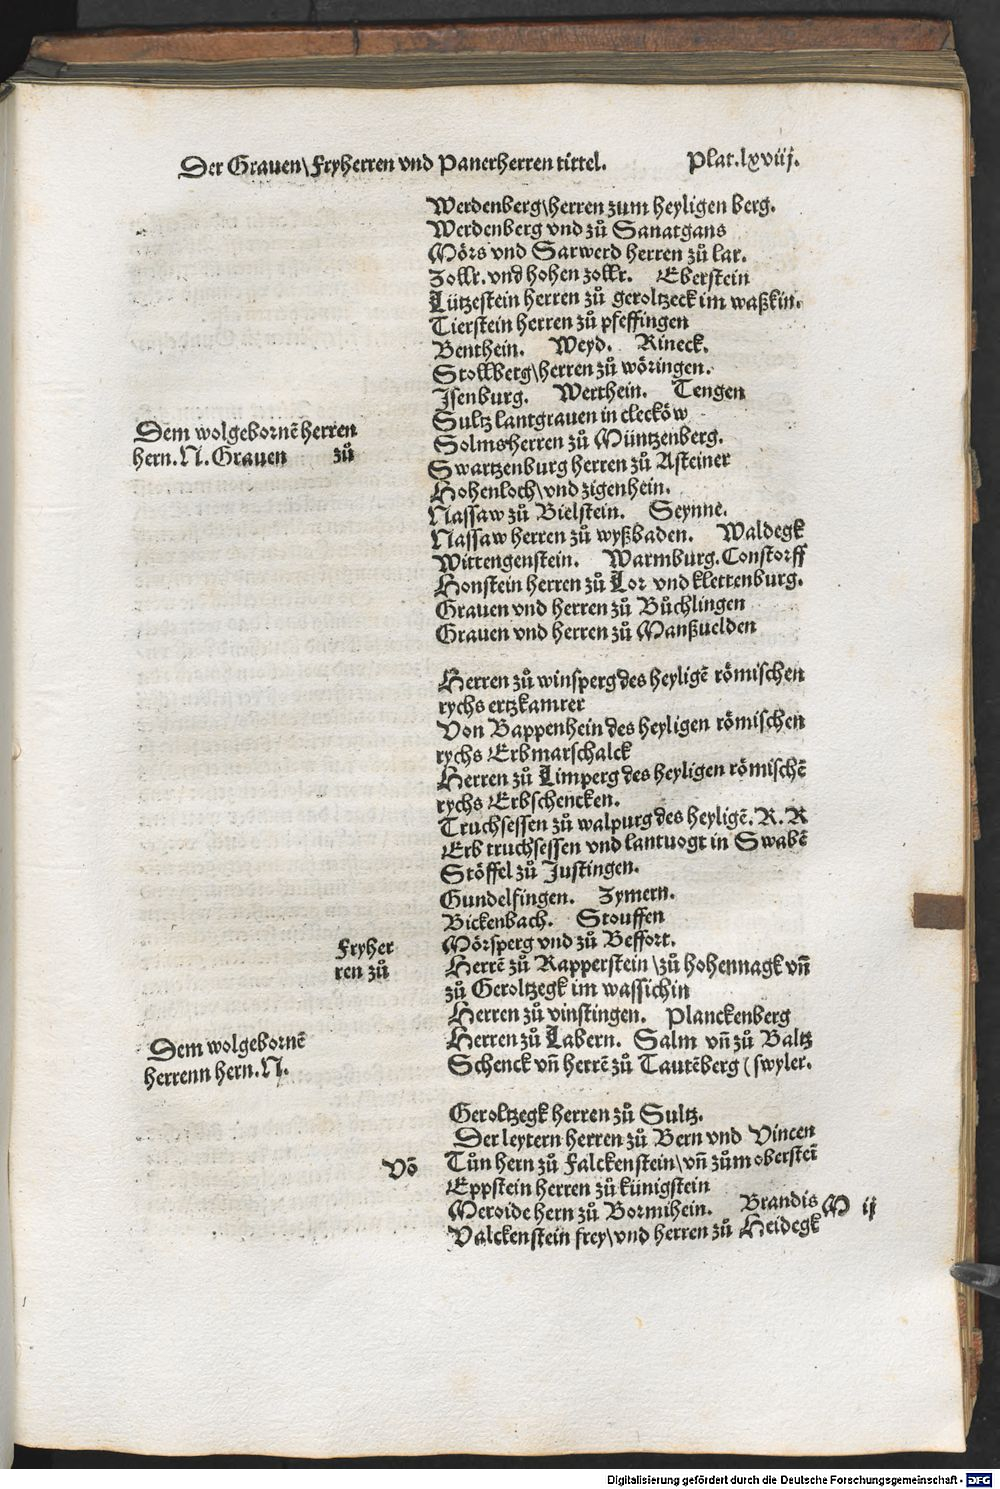 Der Grauen\Fryherren vnd Panerherren tittel. Plat.lxviij.
Werdenberg\herren zum heyligen berg.
Werdenberg vnd zů Sanatgans
Mörs vnd Sarwerd herren zů lar.
Zollr. vnd hohen zollr. Eberstein
Lützestein herren zů geroltzeck im waßkin.
Tierstein herren zů pfeffingen
Benthein. Weyd. Rineck.
Stollberg\herren zů wöringen.
Jsenburg. Werthein. Tengen
Sultz lantgrauen in cleckȫw
Dem wolgebornē herren
hern. N. Grauen zů
Solms herren zů Müntzenberg.
Swartzenburg herren zů Asteiner
Hohenloch\vnd zigenhein.
Nassaw zů Bielstein. Seynne.
Nassaw herren zů wyßbaden. Waldegk
Wittengenstein. Warmburg. Constorff
Honstein herren zů Lor vnd klettenburg.
Grauen vnd herren zů Bůchlingen
Grauen vnd herren zů Manßuelden
Herren zů winsperg des heyligē römischen
rychs ertzkamrer
Von Bappenhein des heyligen römischen
rychs Erbmarschalck
Herren zů Limperg des heyligen römischē
rychs Erbschencken.
Truchsessen zů walpurg des heyligē. R. R
Erb truchsessen vnd lantuogt in Swabē
Stöffel zů Justingen.
Gundelfingen. Zymern.
Bickenbach. Stouffen
Fryher
ren zů
Mörsperg vnd zů Beffort.
Herrē zů Rapperstein \zů hohennagk vn̄
zů Geroltzegk im wassichin
Herren zů vinstingen. Planckenberg
Dem wolgebornē
herrenn hern. N.
Herren zů Labern. Salm vn̄ zů Baltz
Schenck vn̄ herrē zů Tautēberg (swyler.
Geroltzegk herren zů Sultz.
Der leytern herren zů Bern vnd Vincen
Vō Tůn hern zů Falckenstein\vn̄ zům obersteī
Eppstein herren zů künigstein
Meroide hern zů Bormihein. Brandis
Valckenstein frey\vnd herren zů Heidegk
M ij
Digitalisierung gefördert durch die Deutsche Forschungsgemeinschaft - DFG